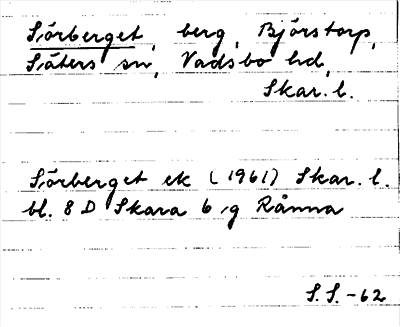 Sörberget, berg, Björstorp,
Säters sn, Vadsbo hd,
Skar. l.
Sörberget ek (1961) Skar. l.
bl. 8 D Skara 6 g Rånna
S.S. -62